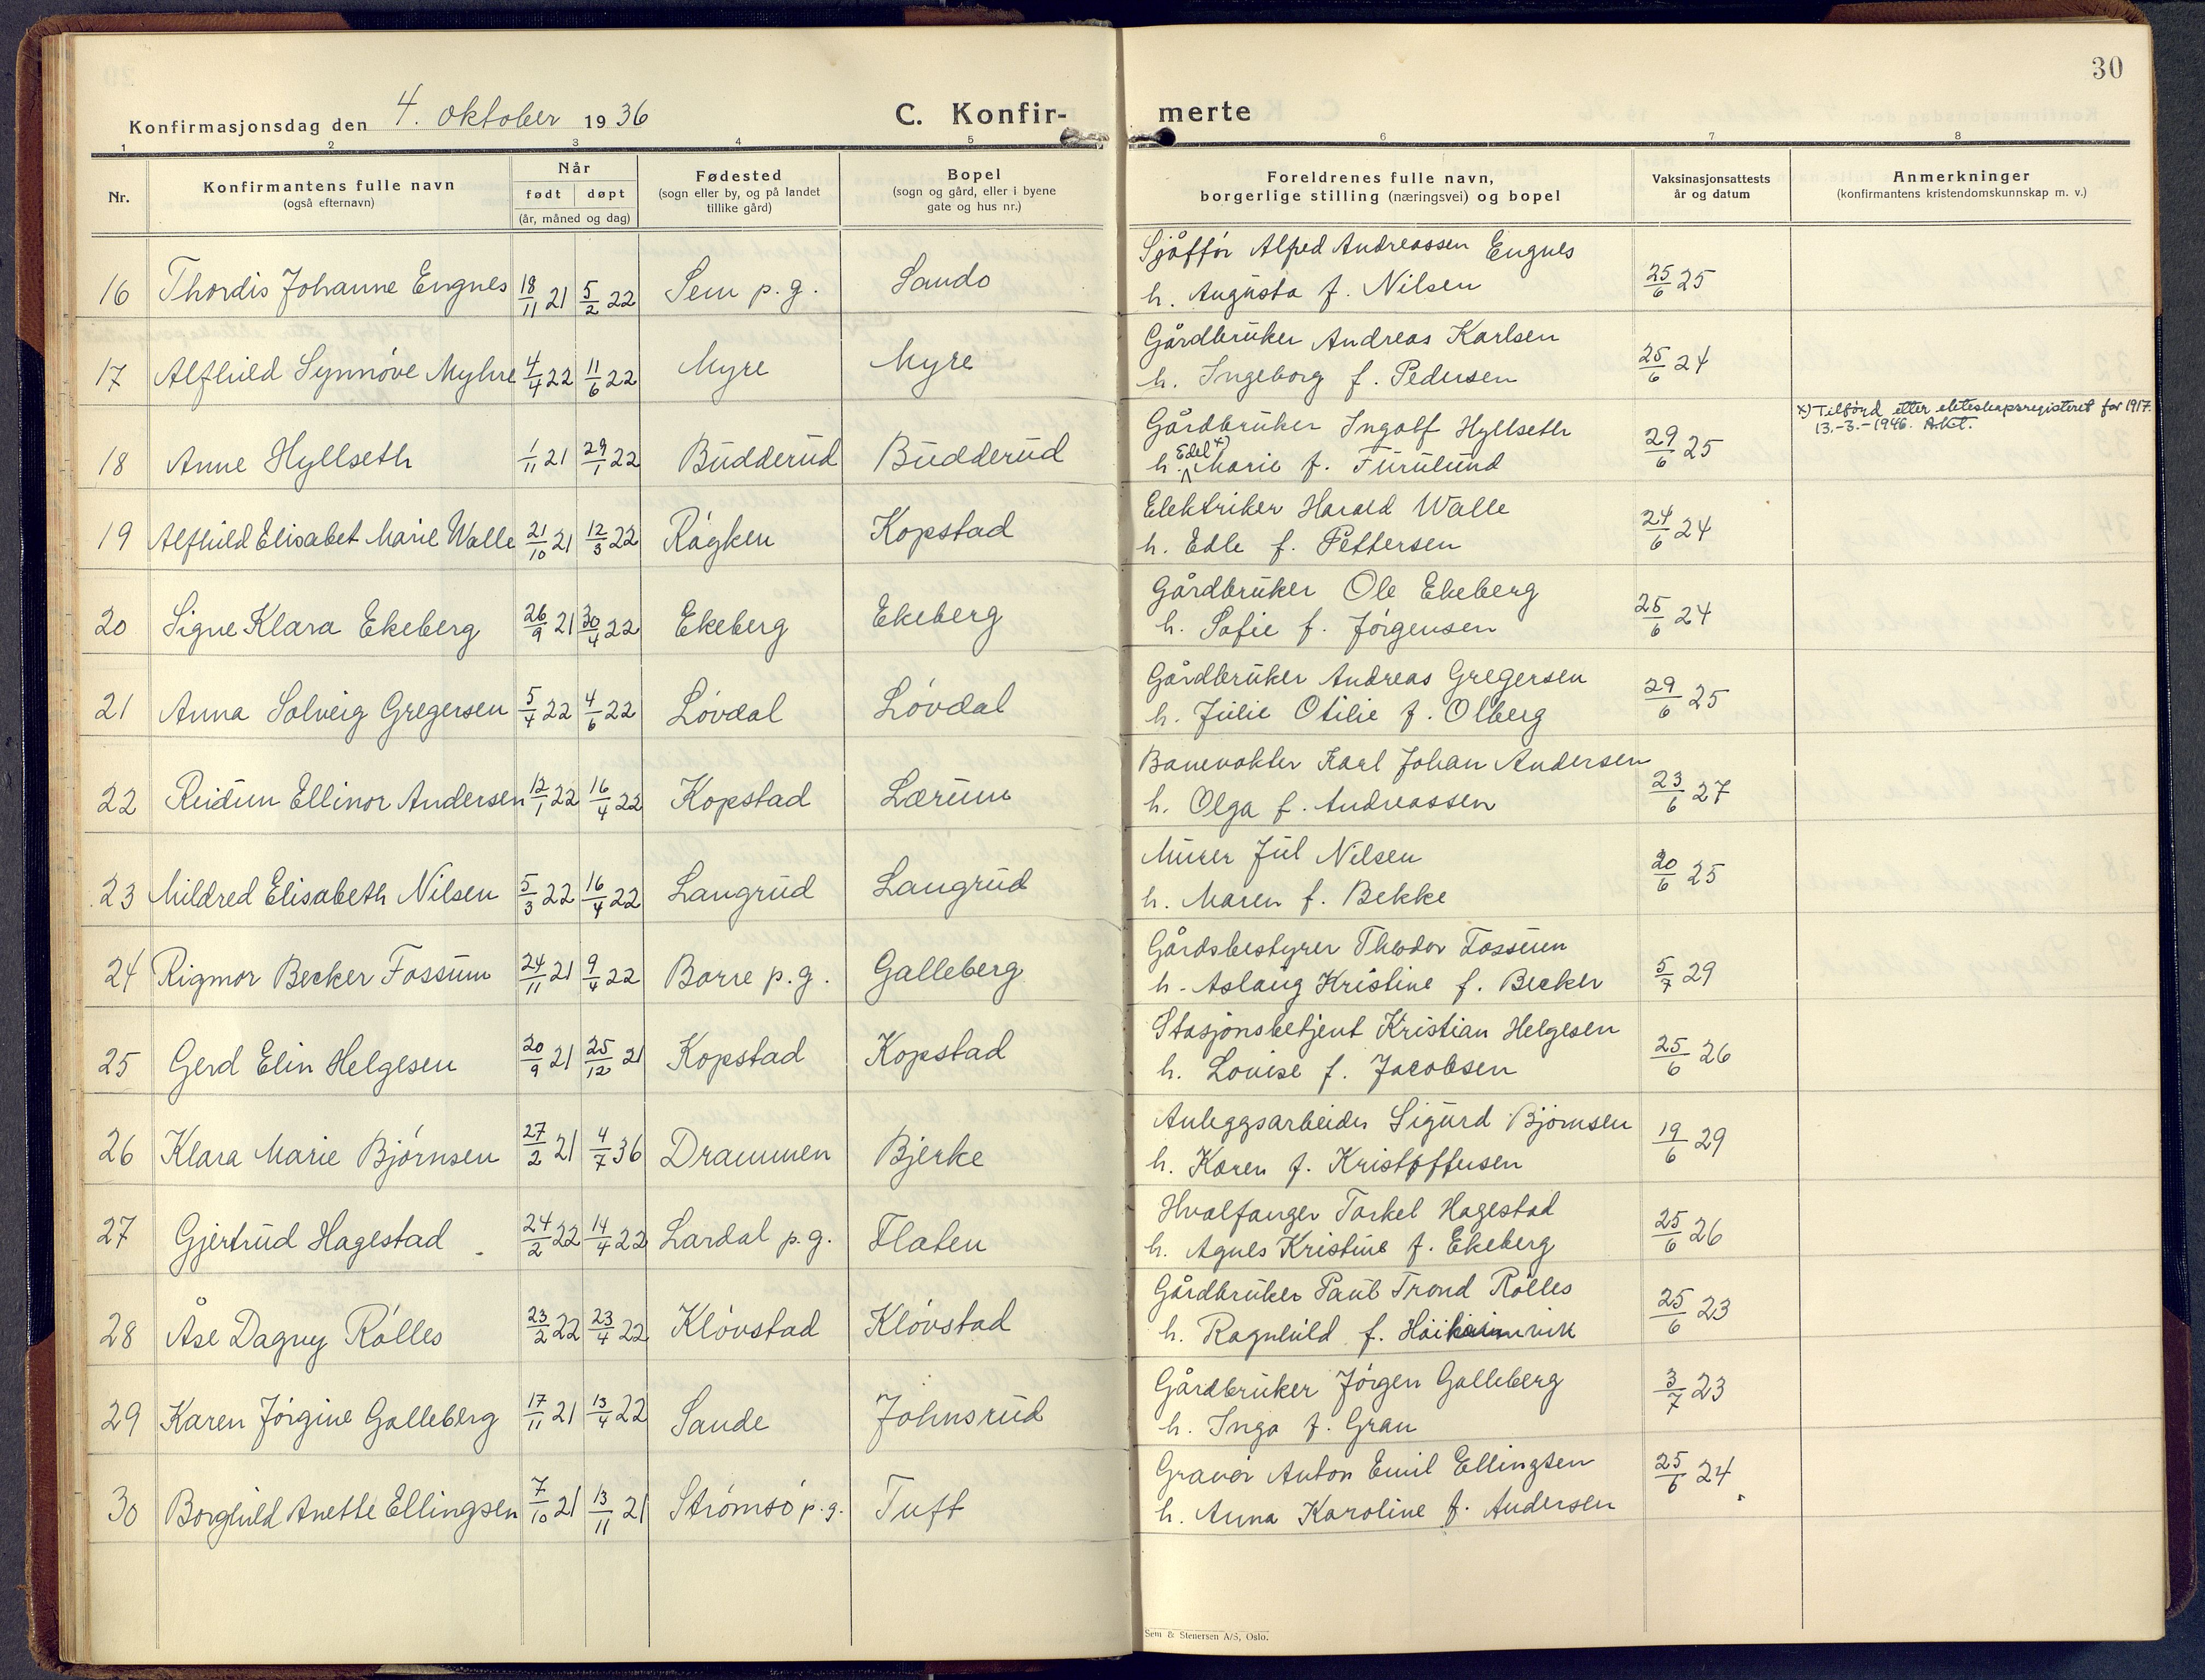 30
Konfirmasjonsdag den 4. oktober 1936
C. Konfir-
merte
1 2 3 4 5 6 7 8
Nr.
Konfirmantens fulle navn
(også efternavn)
Når
født døpt
(år, måned og dag)
Fødested
(sogn eller by, og på landet
tillike gård)
Bopel
(sogn og gård, eller i byene
gate og hus nr.)
Foreldrenes fulle navn,
borgerlige stilling (næringsvei) og bopel
Vaksinasjonsattests
år og datum
Anmerkninger
(konfirmantens kristendomskunnskap m. v.)
16 Thordis Johanne Engnes 18/11 21 5/2 22 Sem p. g. Sando
Sjåffør Alfred Andreassen Engnes
h. Augusta f. Nilsen 25/6 25
17 Alfhild Synnøve Myhre 4/4 22 11/6 22 Myre Myre
Gårdbruker Andreas Karlsen
h. Ingeborg f. Pedersen 25/6 24
18 Anne Hyllseth 1/11 21 29/1 22 Budderud Budderud
Gårdbruker Ingolf Hyllseth
h. Edel x) Marie f. Furulund 29/6 25
x) Tilføyd etter ekteskapsregisteret for 1917.
13.-3.-1946. A.K.T.
19 Alfhild Elisabet Marie Walle 21/10 21 12/3 22 Røyken Kopstad
Elektriker Harald Walle
h. Edle f. Pettersen 24/6 24
20 Signe Klara Ekeberg 26/9 21 30/4 22 Ekeberg Ekeberg
Gårdbruker Ole Ekeberg
h. Sofie f. Jørgensen 25/6 24
21 Anna Solveig Gregersen 5/4 22 4/6 22 Løvdal Løvdal
Gårdbruker Andreas Gregersen
h. Julie Otilie f. Olberg 29/6 25
22 Reidun Ellinor Andersen 12/1 22 16/4 22 Kopstad Lærum
Banevokter Karl Johan Andersen
h. Olga f. Andreassen 23/6 27
23 Mildred Elisabeth Nilsen 5/3 22 16/4 22 Langrud Langrud
Murer Jul Nilsen
h. Maren f. Bekke 20/6 25
24 Rigmor Becker Fossum 24/11 21 9/4 22 Borre p. g. Galleberg
Gårdsbestyrer Theodor Fossum
h. Aslaug Kristine f. Becker 5/7 29
25 Gerd Elin Helgesen 20/9 21 25/12 21 Kopstad Kopstad
Stasjonsbetjent Kristian Helgesen
h. Louise f. Jacobsen 25/6 26
26 Klara Marie Bjørnsen 27/2 21 4/7 36 Drammen Bjerke
Anleggsarbeider Sigurd Bjørnsen
h. Karen f. Kristoffersen 19/6 29
27 Gjertrud Hagestad 24/2 22 14/4 22 Lardal p. g. Flaten
Hvalfanger Torkel Hagestad
h. Agnes Kristine f. Ekeberg 25/6 26
28 Åse Dagny Rølles 23/2 22 23/4 22 Kløvstad Kløvstad
Gårdbruker Paul Trond Rølles
h. Ragnhild f. 25/6 23
29 Karen Jørgine Galleberg 17/11 21 13/4 22 Sande Johnsrud
Gårdbruker Jørgen Galleberg
h. Inga f. Gran 3/7 23
30 Borghild Anette Ellingsen 7/10 21 13/11 21 Strømsø p. g. Tuft
Graver Anton Emil Ellingsen
h. Anna Karoline f. Andersen 25/6 24
Sem & Stenersen A/S, Oslo.